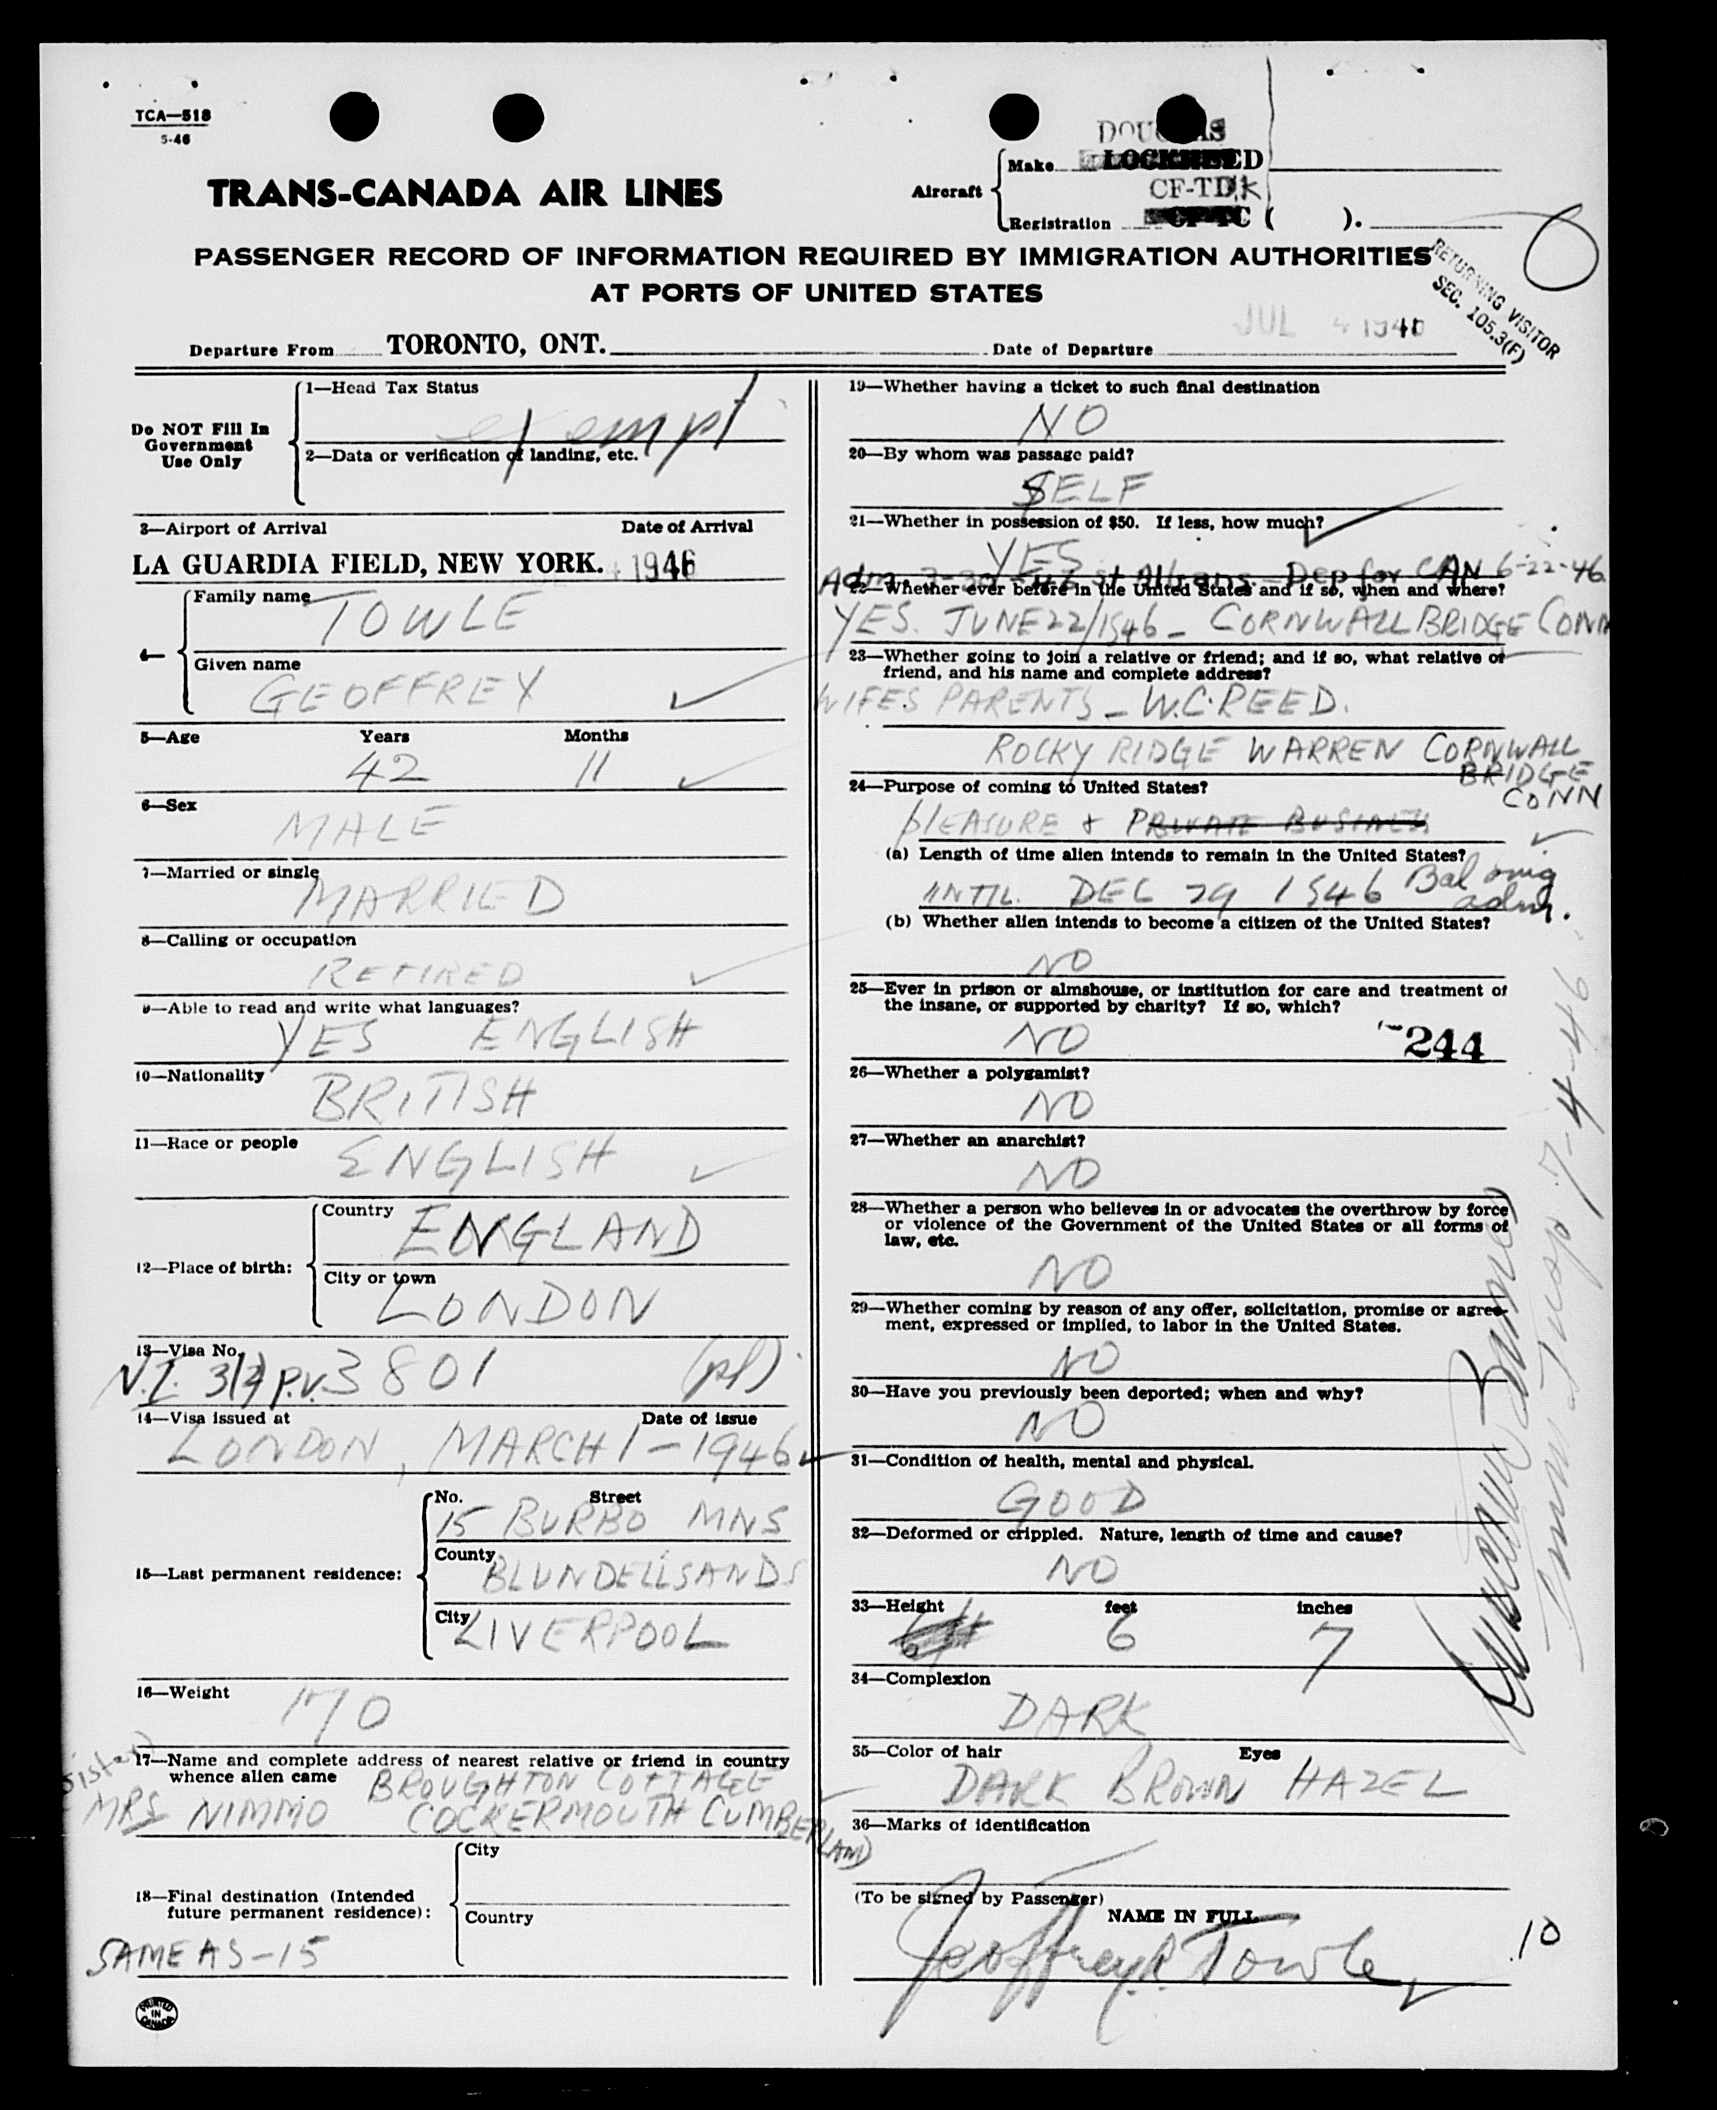 TCA—518
5-46
DOUGLAS
Make LOCKHEED
Aircraft
CF-TDK
Registration CF-TC ( ).
TRANS-CANADA AIR LINES
PASSENGER RECORD OF INFORMATION REQUIRED BY IMMIGRATION AUTHORITIES
AT PORTS OF UNITED STATES
RETURNING VISITOR
SEC. 105.3(F)
JUL 4 1946
Departure From TORONTO, ONT. Date of Departure
Do NOT Fill In
Government
Use Only
1—Head Tax Status
exempt
2—Data or verification of landing, etc.
3—Airport of Arrival Date of Arrival
LA GUARDIA FIELD, NEW YORK. 4 1946
4—
Family name
TOWLE
Given name
GEOFFREY
5—Age Years Months
42 11
6—Sex
MALE
7—Married or single
MARRIED
8—Calling or occupation
RETIRED
9—Able to read and write what languages?
YES ENGLISH
10—Nationality
BRITISH
11—Race or people
ENGLISH
12—Place of birth:
Country
ENGLAND
City or town
LONDON
13—Visa No.
N.I. 3(3) P.V. 3801 (pl)
14—Visa issued at Date of issue
LONDON, MARCH 1-1946
15—Last permanent residence:
No. Street
15 BURBO MNS
County
BLUNDELLSANDS
City
LIVERPOOL
16—Weight
170
(sister)
17—Name and complete address of nearest relative or friend in country
whence alien came
BROUGHTON COTTAGE
MRS NIMMO COCKERMOUTH CUMBERLAND
18—Final destination (Intended
future permanent residence):
City
Country
SAME AS-15
PRINTED
IN
CANADA
19—Whether having a ticket to such final destination
NO
20—By whom was passage paid?
SELF
21—Whether in possession of $50. If less, how much?
YES
Adm. St Albans. Dep for CAN 6-22-46
22—Whether ever before in the United States and if so, when and where?
YES. JUNE 22/1946 - CORNWALL BRIDGE CONN
23—Whether going to join a relative or friend; and if so, what relative or
friend, and his name and complete address?
WIFES PARENTS - W.C. REED.
ROCKY RIDGE WARREN CORNWALL
BRIDGE
CONN
24—Purpose of coming to United States?
PLEASURE & PRIVATE BUSINESS
(a) Length of time alien intends to remain in the United States?
UNTIL DEC 29 1946 Bal orig
adm.
(b) Whether alien intends to become a citizen of the United States?
NO
25—Ever in prison or almshouse, or institution for care and treatment of
the insane, or supported by charity? If so, which?
NO
244
26—Whether a polygamist?
NO
27—Whether an anarchist?
NO
28—Whether a person who believes in or advocates the overthrow by force
or violence of the Government of the United States or all forms of
law, etc.
NO
29—Whether coming by reason of any offer, solicitation, promise or agree-
ment, expressed or implied, to labor in the United States.
NO
30—Have you previously been deported; when and why?
NO
31—Condition of health, mental and physical.
GOOD
32—Deformed or crippled. Nature, length of time and cause?
NO
33—Height feet inches
6 7
34—Complexion
DARK
35—Color of hair Eyes
DARK BROWN HAZEL
36—Marks of identification
(To be signed by Passenger)
NAME IN FULL
Geoffrey R. Towle
10
Immt Insp 7-4-46